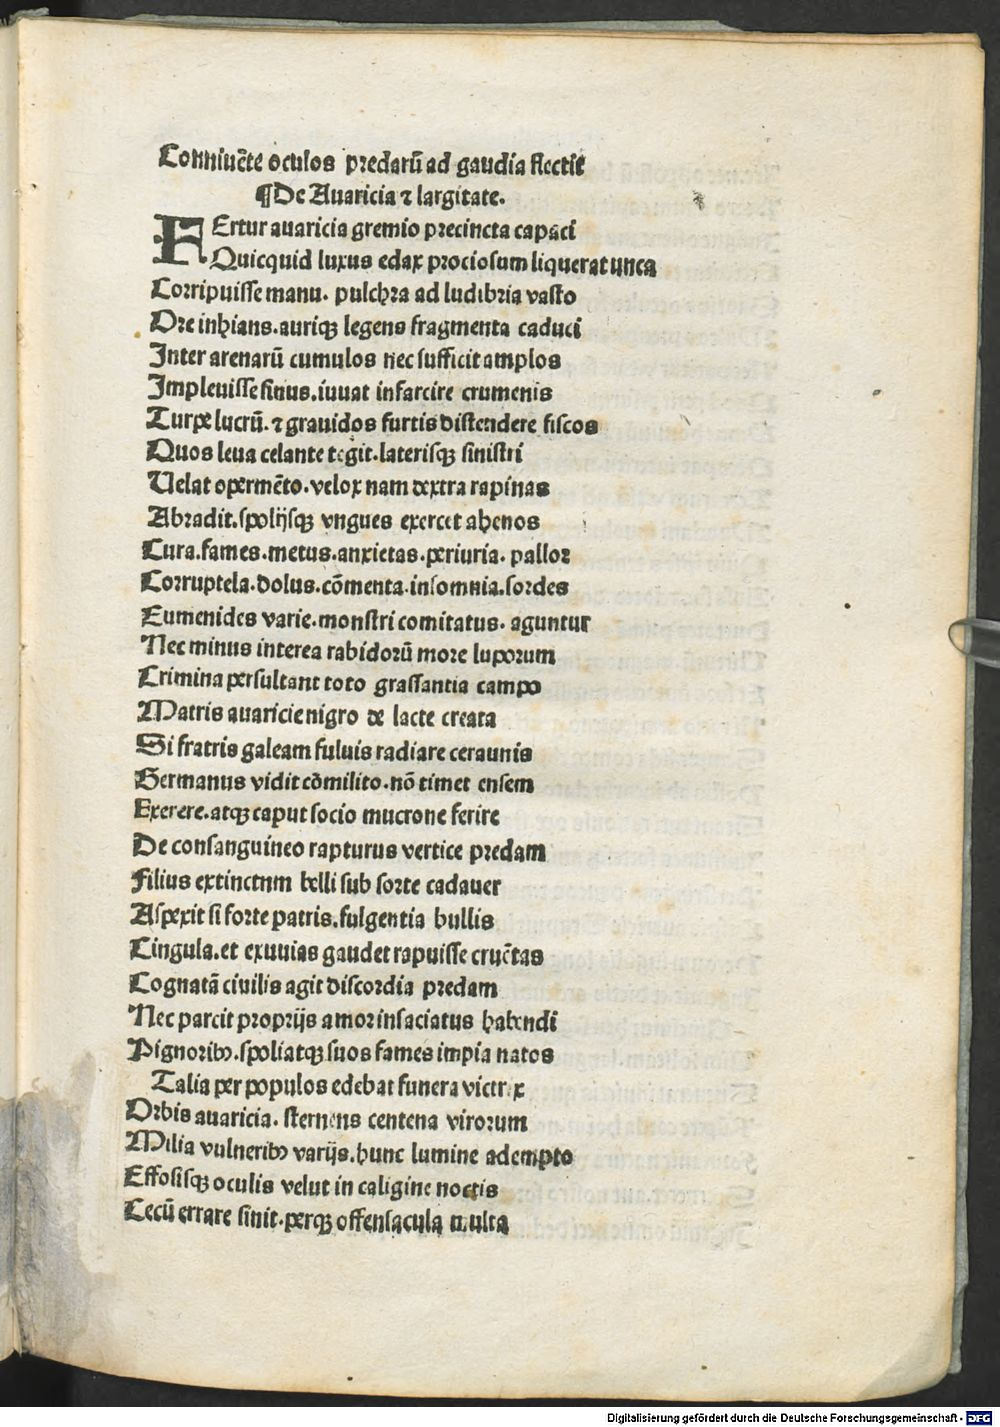 Conniuēte oculos predarū ad gaudia flectit
¶De Auaricia ⁊ largitate.
FErtur auaricia gremio precincta capaci
Quicquid luxus edax prociosum liquerat unca
Corripuisse manu. pulchra ad ludibria vasto
Ore inhians. auriqꝫ legens fragmenta caduci
Inter arenarū cumulos nec sufficit amplos
Impleuisse sinus. iuuat infarcire crumenis
Turpe lucrū. ⁊ grauidos furtis distendere fiscos
Quos leua celante tegit. laterisqꝫ sinistri
Uelat opermēto. velox nam dextra rapinas
Abradit. spolijsqꝫ vngues exercet ahenos
Cura. fames. metus. anxietas. periuria. pallor
Corruptela. dolus. cōmenta. insomnia. sordes
Eumenides varie. monstri comitatus. aguntur
Nec minus interea rabidorū more luporum
Crimina persultant toto grassantia campo
Matris auaricie nigro de lacte creata
Si fratris galeam fuluis radiare ceraunis
Germanus vidit cōmilito. nō timet ensem
Exerere. atqꝫ caput socio mucrone ferire
De consanguineo rapturus vertice predam
Filius extinctnm belli sub sorte cadauer
Aspexit si forte patris. fulgentia bullis
Cingula. et exuuias gaudet rapuisse cruētas
Cognatā ciuilis agit discordia predam
Nec parcit proprijs amor insaciatus habendi
Pignoribꝰ. spoliatqꝫ suos fames impia natos
Talia per populos edebat funera victrix
Orbis auaricia. sternens centena virorum
Milia vulneribꝰ varijs. hunc lumine adempto
Effosisqꝫ oculis velut in caligine noctis
Cecū errare sinit. perqꝫ offensacula multa
Digitalisierung gefördert durch die Deutsche Forschungsgemeinschaft - DFG